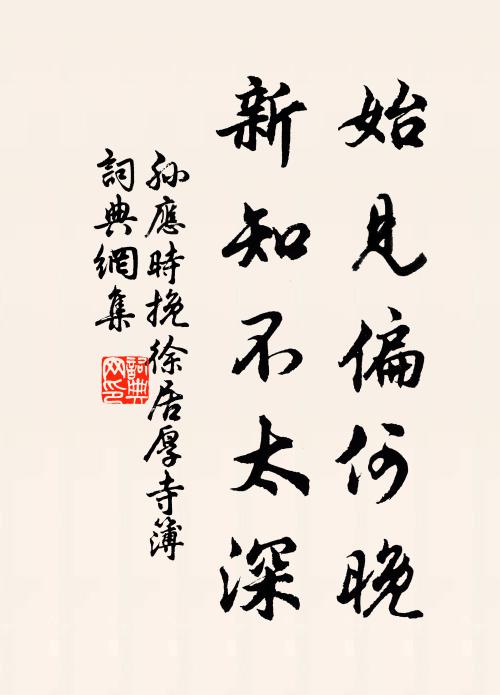 始見偏何晚
新知不太深
孫應時挽徐居厚寺簿
詞典網集
詞典網印